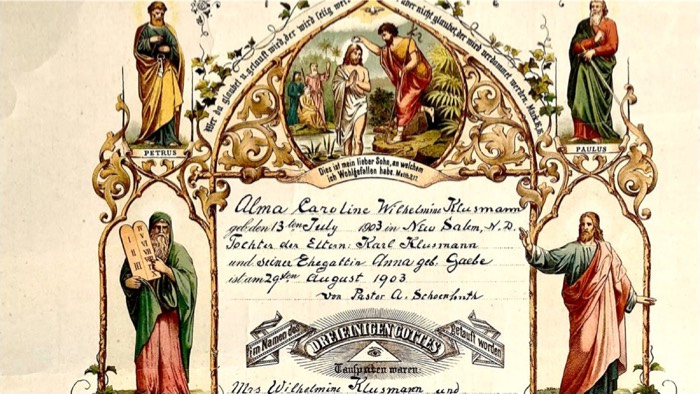 Wer da glaubet u. getauft wird, der wird selig wer
aber nicht glaubet, der wird verdammet werden. Mark.
PETRUS
PAULUS
Dies ist mein lieber Sohn, an welchem
ich Wohlgefallen habe. Matth. 3,17.
Alma Caroline Wilhelmine Klusmann
geb. den 13ten July 1903 in New Salem, N.D.
Tochter der Eltern: Karl Klusmann
und seiner Ehegattin Anna geb. Gaebe
ist am 29sten August 1903
von Pastor A.
I II III
IV V VI VII VIII
im Namen des
DREIEINIGEN GOTTES
getauft worden
Taufpaten waren:
Mrs Wilhelmine Klusmann und